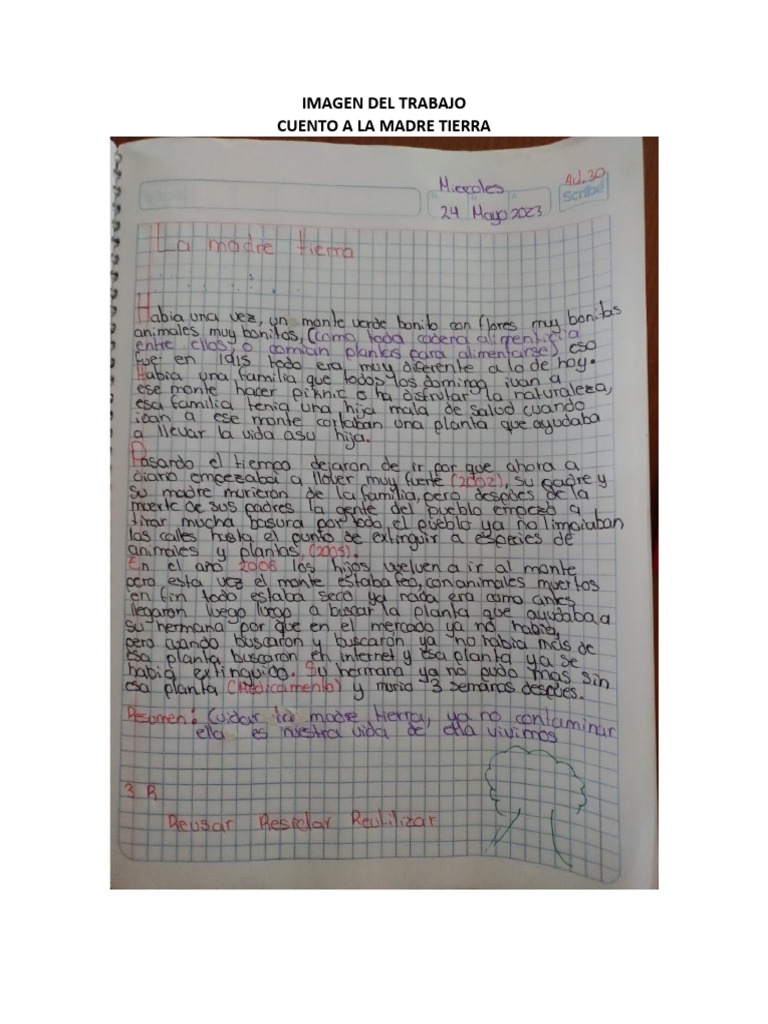 IMAGEN DEL TRABAJO
CUENTO A LA MADRE TIERRA
Ad.30
Miercoles
Scribe
24 Mayo 2023
La madre tierra
Habia una vez, un monte verde bonito con flores muy bonitas
animales muy bonitos, (como toda cadena alimenticia
entre ellos, o comian plantas para alimentarse) eso
fue en 1915 todo era muy diferente a lo de hoy.
Habia una familia que todos los domingo ivan a
ese monte hacer picknic o ha disfrutar la naturaleza,
esa familia tenia una hija mala de salud cuando
ivan a ese monte cortaban una planta que ayudaba
a llevar la vida asu hija.
Pasando el tiempo dejaron de ir por que ahora a
diario empezaba a llover muy fuerte (2002), su padre y
su madre murieron de la familia, pero despues de la
muerte de sus padres la gente del pueblo empezo a
tirar mucha basura por todo el pueblo ya no limpiaban
las calles hasta el punto de extinguir a especies de
animales y plantas (2005).
En el año 2006 los hijos vuelven a ir al monte
pero esta vez el monte estaba feo, con animales muertos
en fin todo estaba seco ya nada era como antes
llegaron luego luego a buscar la planta que ayudaba a
su hermana por que en el mercado ya no habia,
pero cuando buscaron y buscaron ya no habia mas de
esa planta buscaron en internet y esa planta ya se
habia extinguido. Su hermana ya no pudo mas sin
esa planta (Medicamento) y murio 3 semanas despues.
Resumen: Cuidar la madre tierra, ya no contaminar
ella es nuestra vida de ella vivimos
3 R
Reusar Resiclar Reutilizar